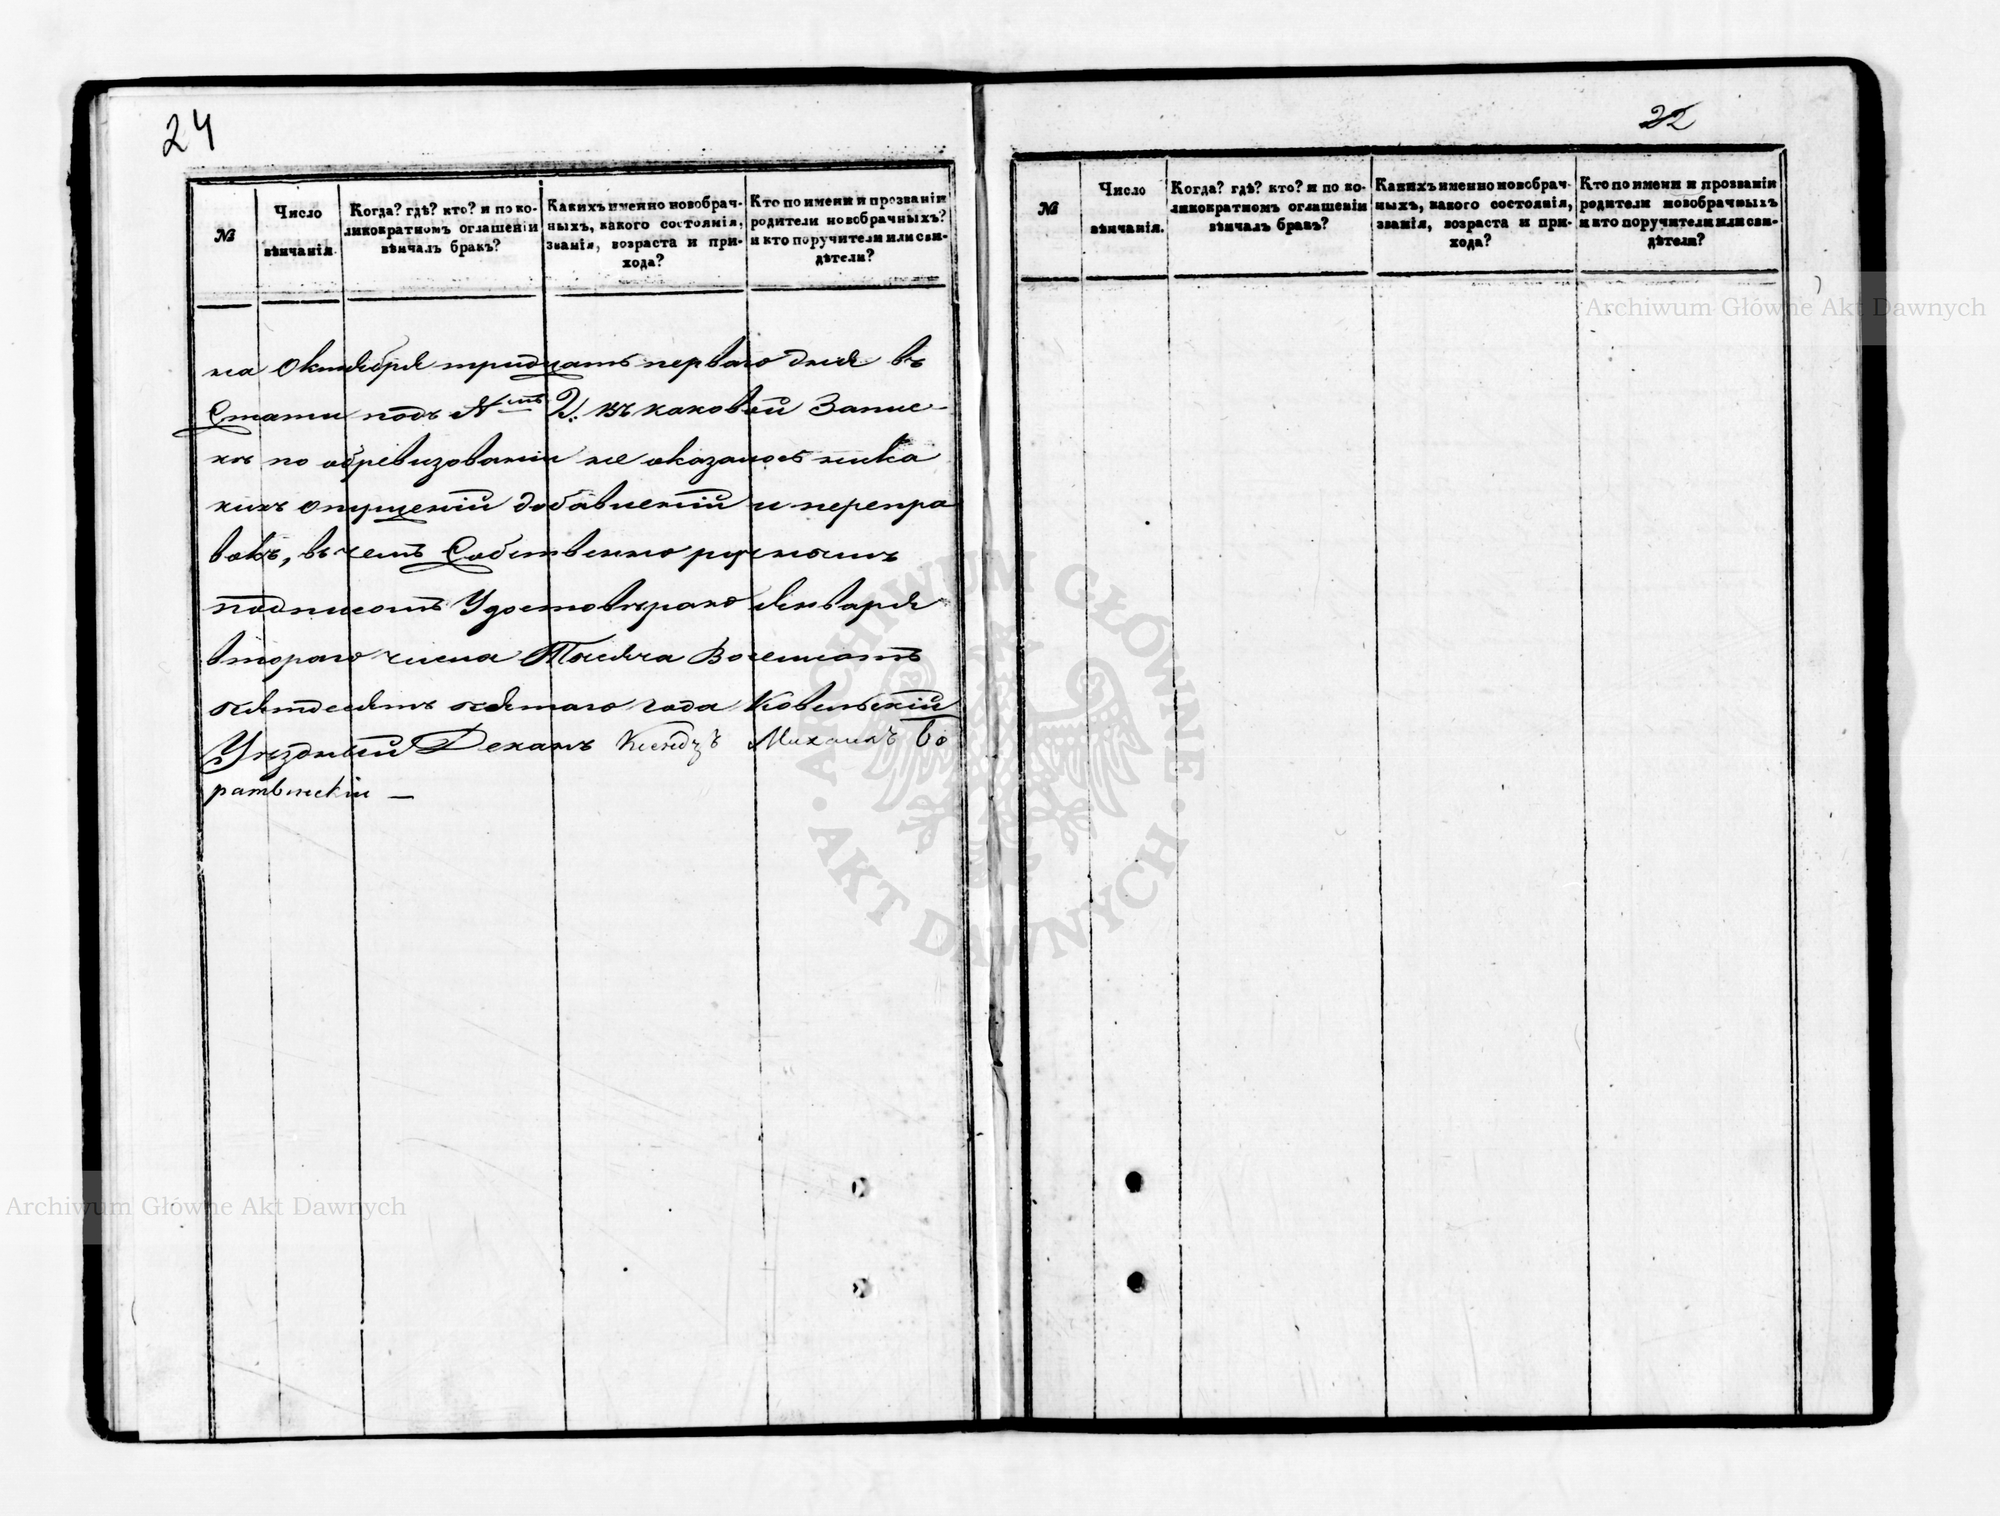 24
№
Число
вѣнчанія.
Когда? гдѣ? кто? и по ко-
ликократномъ оглашеніи
вѣнчалъ бракъ?
Какихъ именно новобрач-
ныхъ, какого состоянія,
званія, возраста и при-
хода?
Кто по имени и прозванію
родители новобрачныхъ?
и кто поручители или сви-
дѣтели?
на Октября тридцать перваго дня въ
Статьи подъ №мъ 2. въ каковой Запис-
кѣ по обревизованіи не оказалось ника
кихъ опущеній добавленій и перепра
вокъ, въ чемъ Собственно ручнымъ
подписомъ Удостовѣряю Января
втораго числа Тысяча Восемсотъ
пятдесятъ пятаго года Ковельскій
Уѣздный Деканъ Ксендзъ Михаилъ
22
№
Число
вѣнчанія.
Когда? гдѣ? кто? и по ко-
ликократномъ оглашеніи
вѣнчалъ бракъ?
Какихъ именно новобрач-
ныхъ, какого состоянія,
званія, возраста и при-
хода?
Кто по имени и прозваніи
родители новобрачныхъ
и кто поручители или сви-
дѣтели?
Archiwum Główne Akt Dawnych
ARCHIWUM GŁÓWNE
AKT DAWNYCH
Archiwum Główne Akt Dawnych